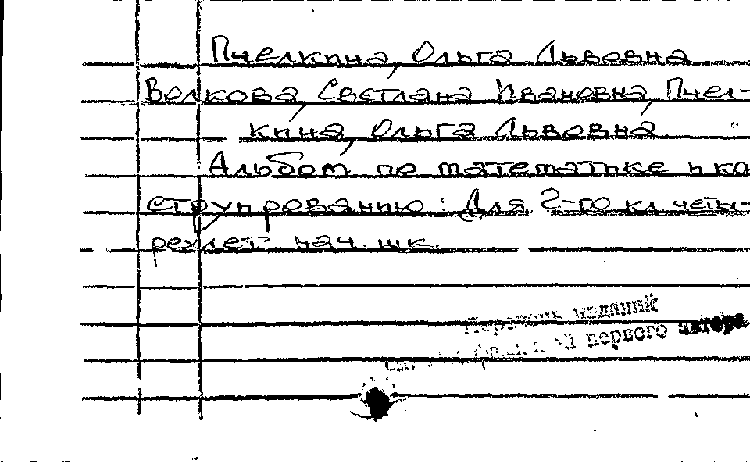 Пчелкина, Ольга Львовна
Волкова, Светлана Ивановна, Пчел-
кина, Ольга Львовна.
Альбом по математике и ко
струированию : Для 2-го кл. четы-
рехлет. нач. шк.
Перечень изданий
см. первого автора